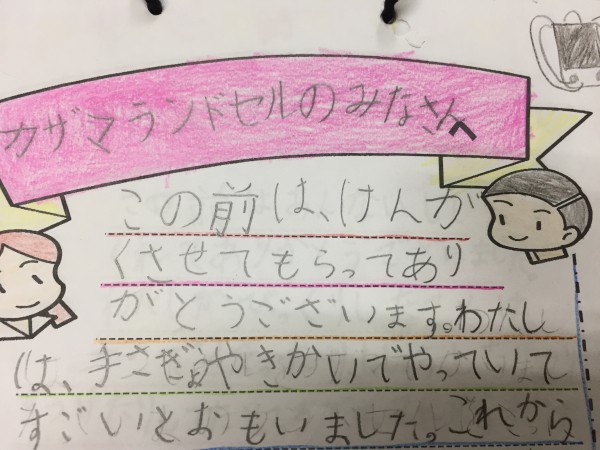 カザマランドセルのみなさんへ
この前は、けんが
くさせてもらってあり
がとうございます。わたし
は、手さぎょうやきかいでやっていて
すごいとおもいました。これから